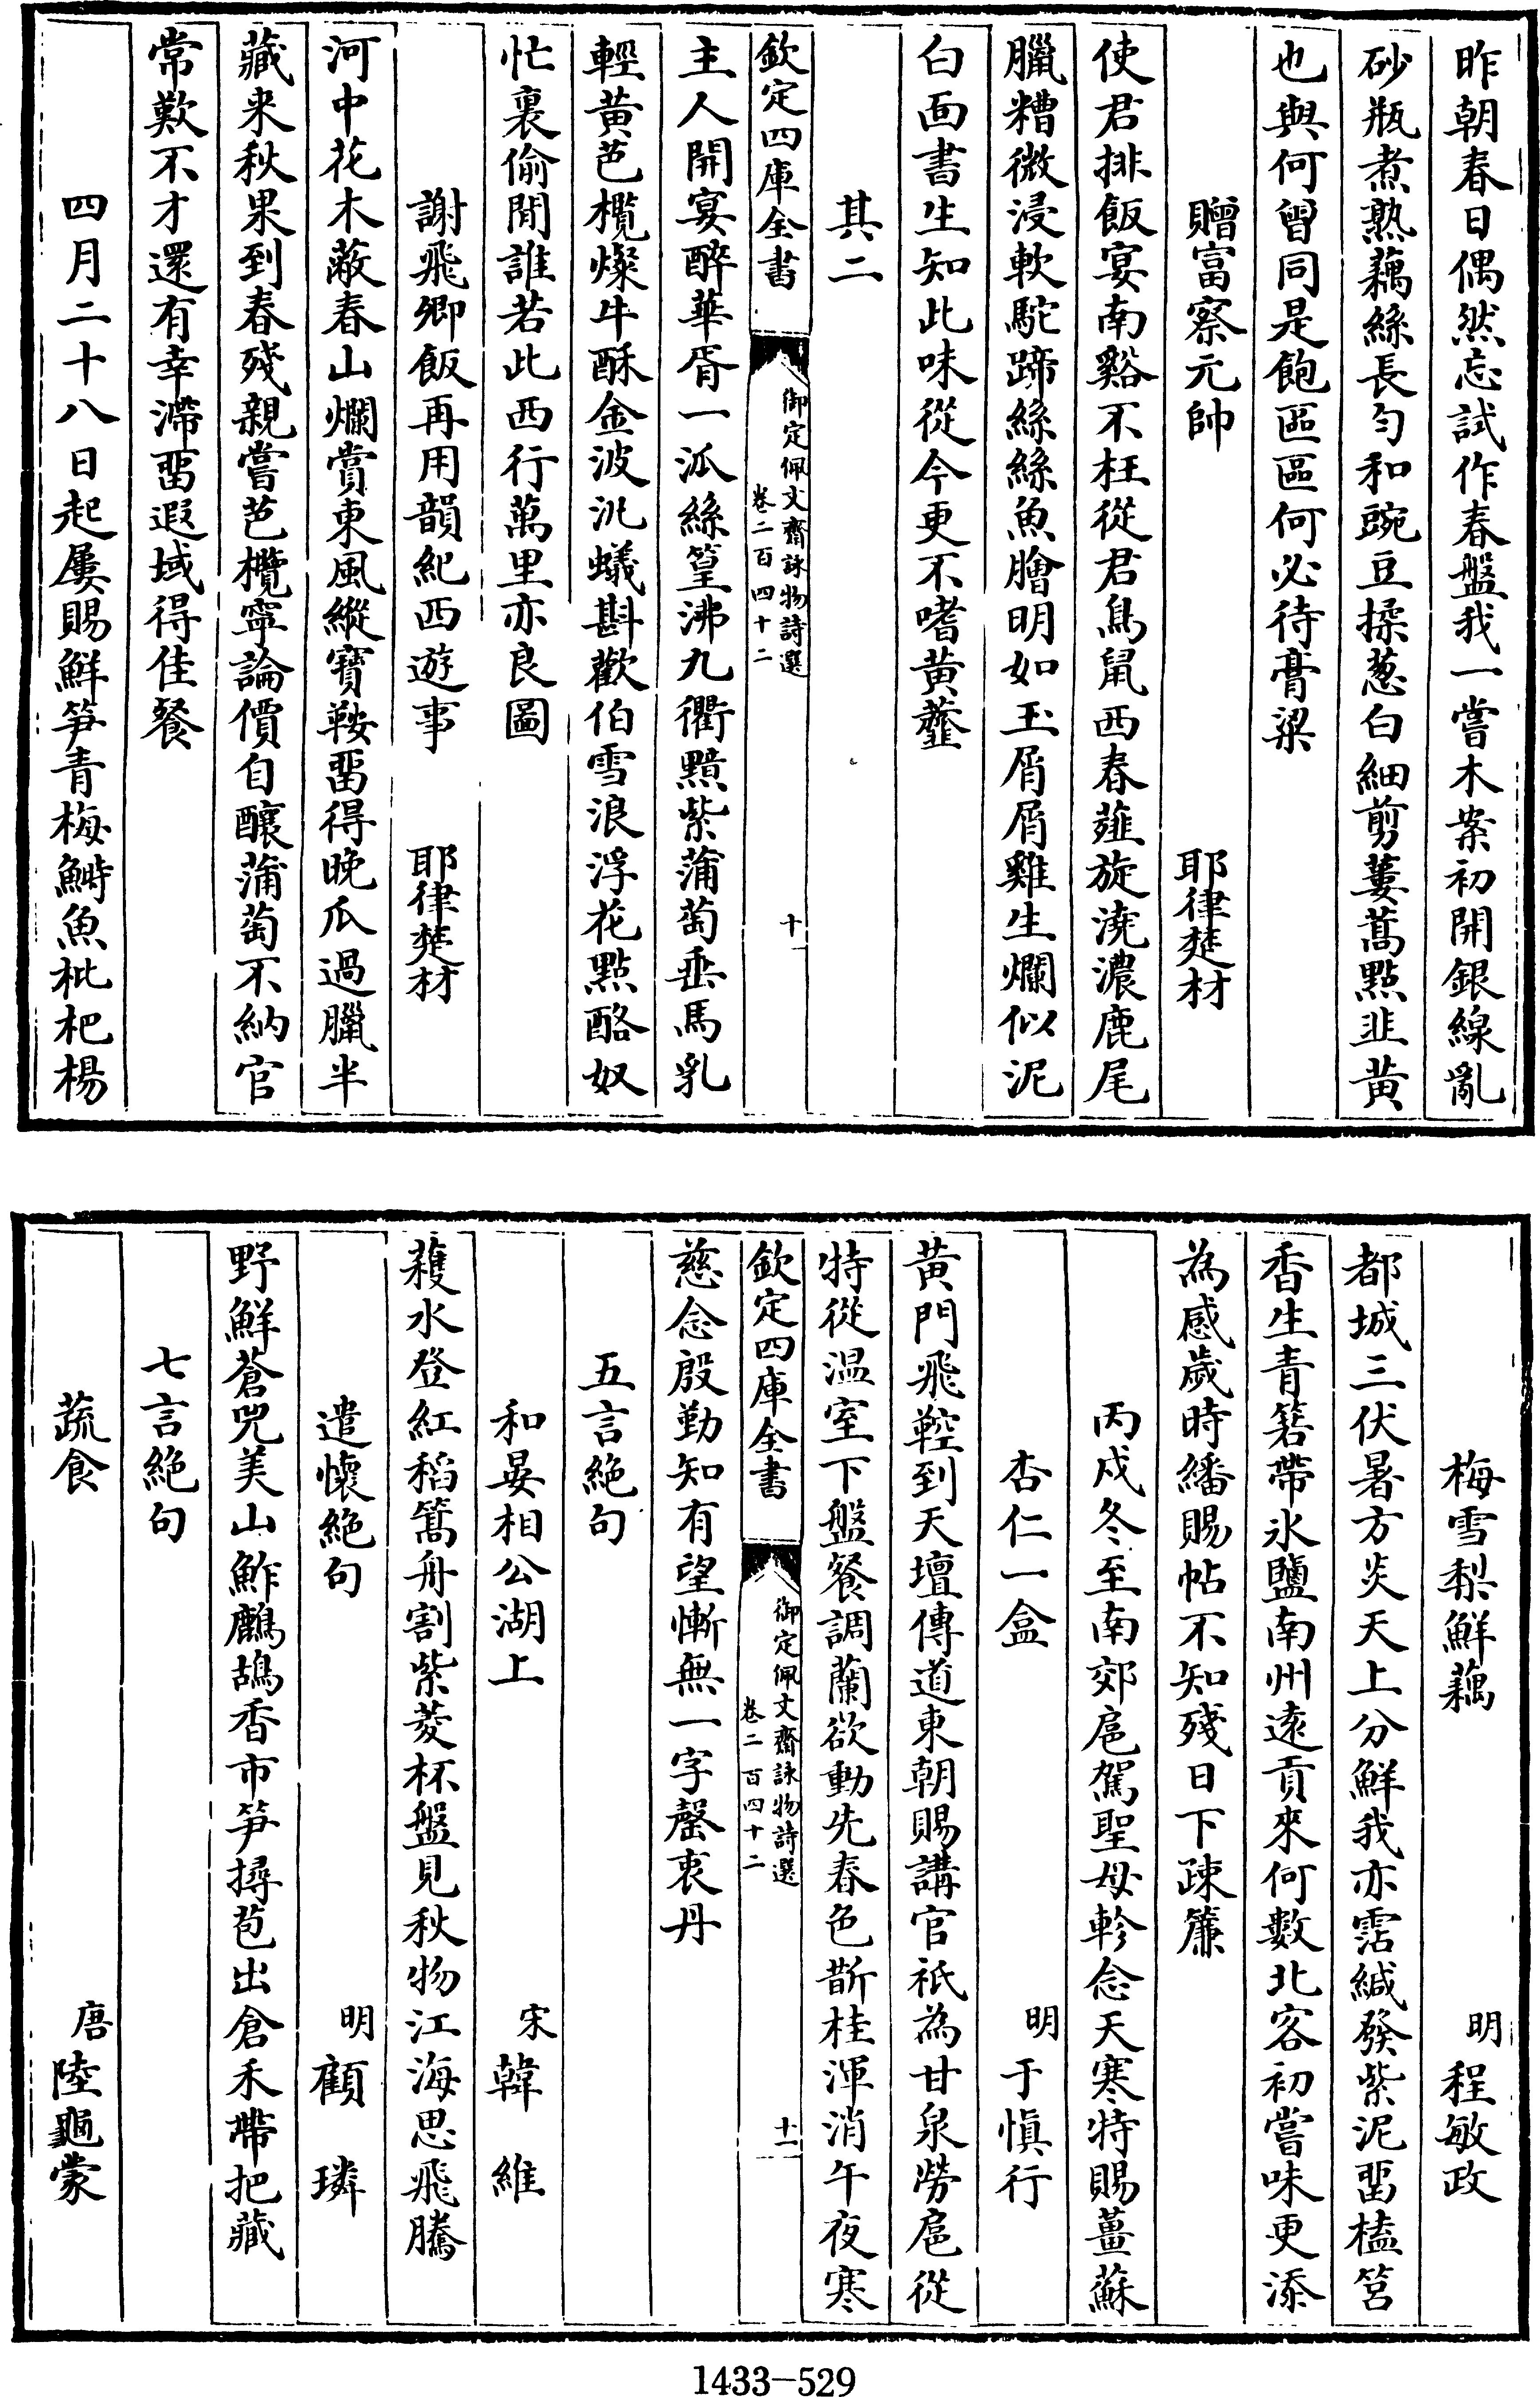 昨朝春日偶然忘試作春盤我一嘗木案初開銀線亂
砂瓶煮熟藕絲長勻和豌豆揉葱白細剪蔞蒿點韭黄
也與何曾同是飽區區何必待膏粱
贈富察元帥　耶律楚材
使君排飯宴南谿不枉從君鳥鼠西春薤旋澆濃鹿尾
臘糟微浸軟駝蹄絲絲魚膾明如玉屑屑雞生爛似泥
白面書生知此味從今更不嗜黄虀
其二
欽定四庫全書
御定佩文齋詠物詩選
卷二百四十二
十一
主人開宴醉華胥一派絲篁沸九衢黯紫蒲萄垂馬乳
輕黄芭欖燦牛酥金波泛蟻斟歡伯雪浪浮花點酪奴
忙裏偷閒誰若此西行萬里亦良圖
謝飛卿飯再用韻紀西遊事　耶律楚材
河中花木蔽春山爛賞東風縱寶鞍畱得晚瓜過臘半
藏來秋果到春殘親嘗芭欖寧論價自釀蒲萄不納官
常歎不才還有幸滯畱遐域得佳餐
四月二十八日起屢賜鮮笋青梅鰣魚枇杷楊
梅雪梨鮮藕　明程敏政
都城三伏暑方炎天上分鮮我亦霑緘發紫泥畱榼筥
香生青箬帶氷鹽南州逺貢來何數北客初嘗味更添
為感歲時繙賜帖不知殘日下疎簾
丙戌冬至南郊扈駕聖母軫念天寒特賜薑蘇
杏仁一盒　明于愼行
黄門飛鞚到天壇傳道東朝賜講官祇為甘泉勞扈從
特從温室下盤餐調蘭欲動先春色斮桂渾消午夜寒
欽定四庫全書
御定佩文齋詠物詩選
卷二百四十二
十一
慈念殷勤知有望慚無一字罄衷丹
五言絶句
和晏相公湖上　宋韓維
䕶水登紅稻篙舟割紫菱杯盤見秋物江海思飛騰
遣懷絶句　明顧璘
野鮮蒼兕美山鮓鷓鴣香市笋撏苞出倉禾帶把藏
七言絶句
蔬食　唐陸龜蒙
1433—529